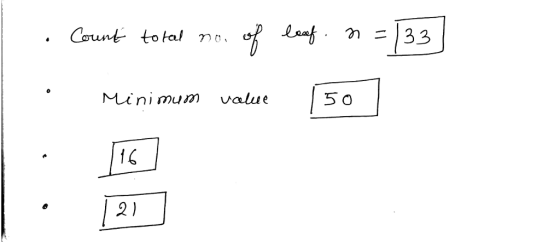 • Count total no. of leaf. n = 33
• Minimum value 50
• 16
• 21